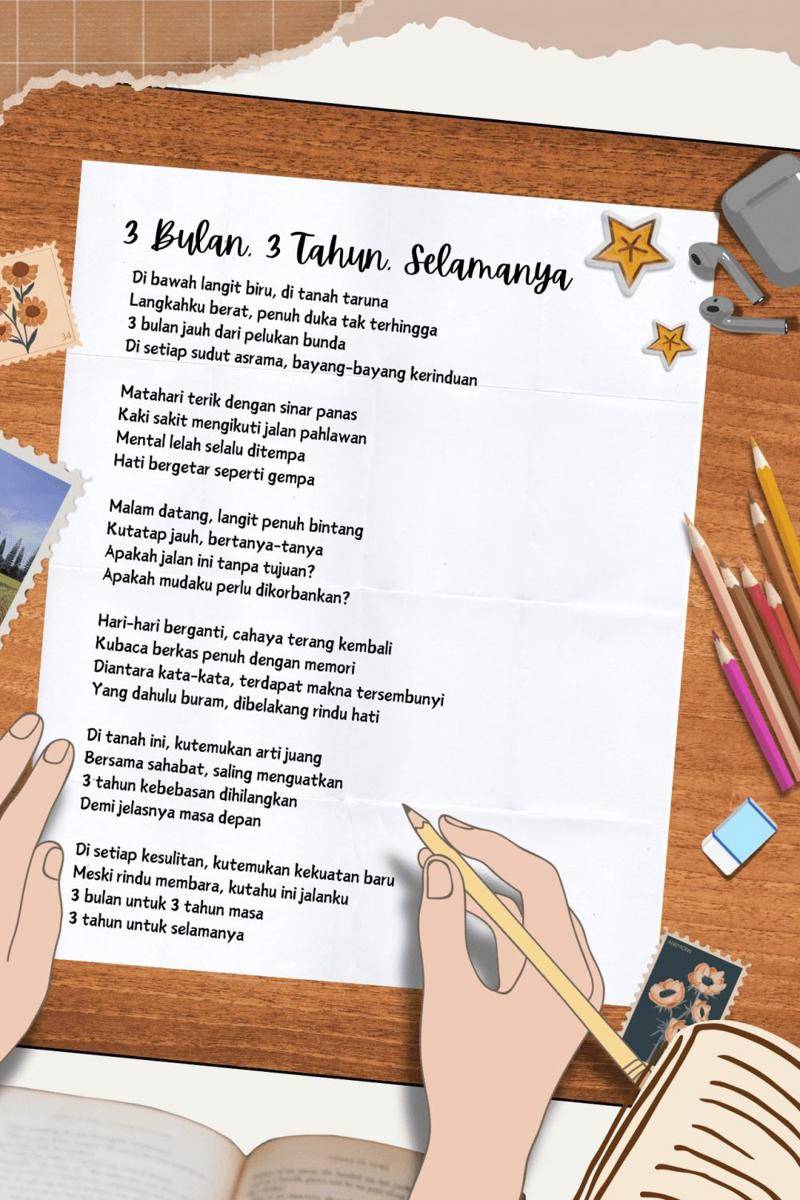 3 Bulan, 3 Tahun, Selamanya
Di bawah langit biru, di tanah taruna
Langkahku berat, penuh duka tak terhingga
3 bulan jauh dari pelukan bunda
Di setiap sudut asrama, bayang-bayang kerinduan
Matahari terik dengan sinar panas
Kaki sakit mengikuti jalan pahlawan
Mental lelah selalu ditempa
Hati bergetar seperti gempa
Malam datang, langit penuh bintang
Kutatap jauh, bertanya-tanya
Apakah jalan ini tanpa tujuan?
Apakah mudaku perlu dikorbankan?
Hari-hari berganti, cahaya terang kembali
Kubaca berkas penuh dengan memori
Diantara kata-kata, terdapat makna tersembunyi
Yang dahulu buram, dibelakang rindu hati
Di tanah ini, kutemukan arti juang
Bersama sahabat, saling menguatkan
3 tahun kebebasan dihilangkan
Demi jelasnya masa depan
Di setiap kesulitan, kutemukan kekuatan baru
Meski rindu membara, kutahu ini jalanku
3 bulan untuk 3 tahun masa
3 tahun untuk selamanya
34